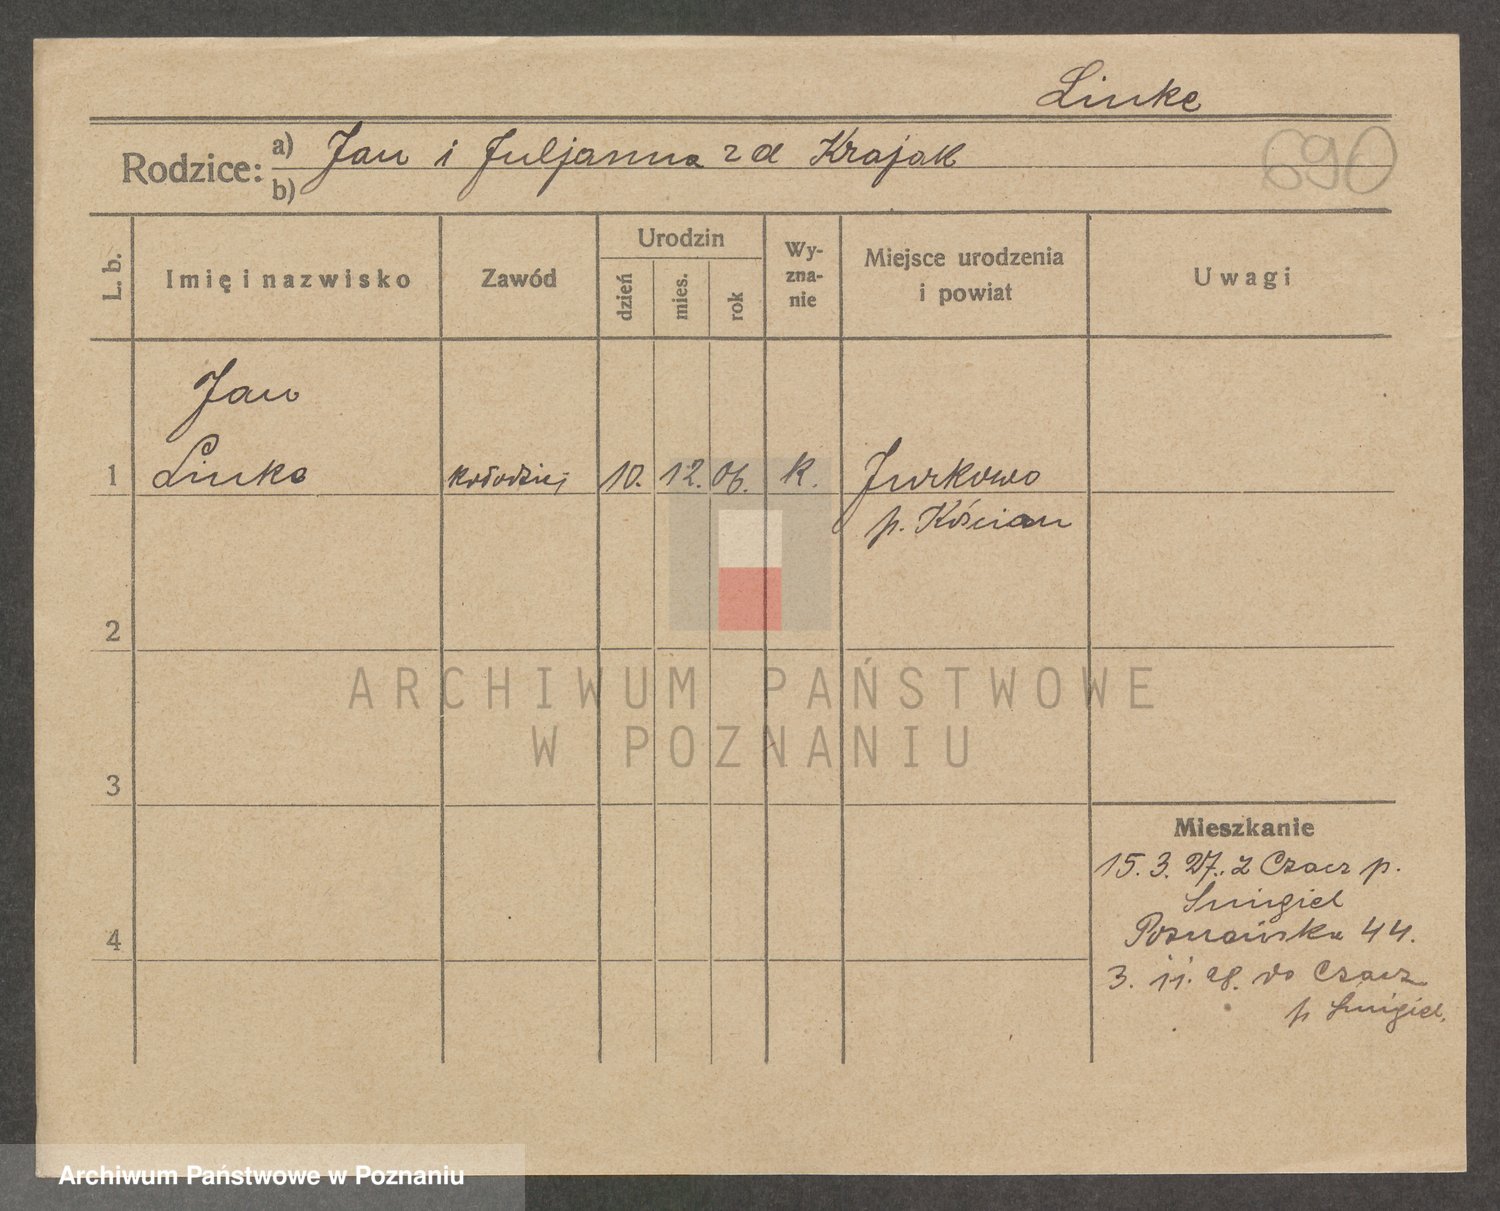 Linke
690
Rodzice:
a) Jan i Juljanna z d Krajak
b)
L. b.
Imię i nazwisko
Zawód
Urodzin
dzień
mies.
rok
Wy-
zna-
nie
Miejsce urodzenia
i powiat
Uwagi
Jan
1 Linke kołodziej 10. 12. 06. k. Jurkowo
p. Kościan
2
3
4
ARCHIWUM PAŃSTWOWE
W POZNANIU
Mieszkanie
15. 3. 27. z Czacz p.
Smigiel
Poznańska 44.
3. 11. 28. do Czacz
p Smigiel.
Archiwum Państwowe w Poznaniu